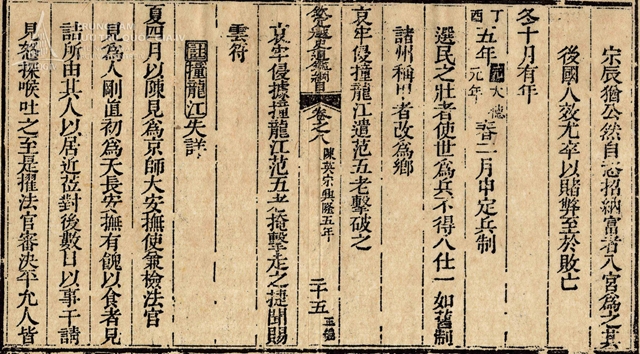 宗辰猶公然自恣招納富者入宮爲之其
後國人效尤卒以賭弊至於敗亡
冬十月有年
丁酉五年元大德元年春二月申定兵制
選民之壯者使世爲兵不得入仕一如舊制
諸州稱甲者改爲鄉
哀牢侵撞龍江遣范五老擊破之
欽定越史通鑑綱目 卷之八 陳英宗興隆五年 二十五 正編
哀牢侵據撞龍江范五老掩擊走之捷聞賜
雲符
註撞龍江失詳
夏四月以陳見爲京師大安撫使兼檢法官
見爲人剛直初爲天長安撫有餽以食者見
詰所由其人以居近莅對後數日以事干請
見怒探喉吐之至是擢法官審決平允人皆